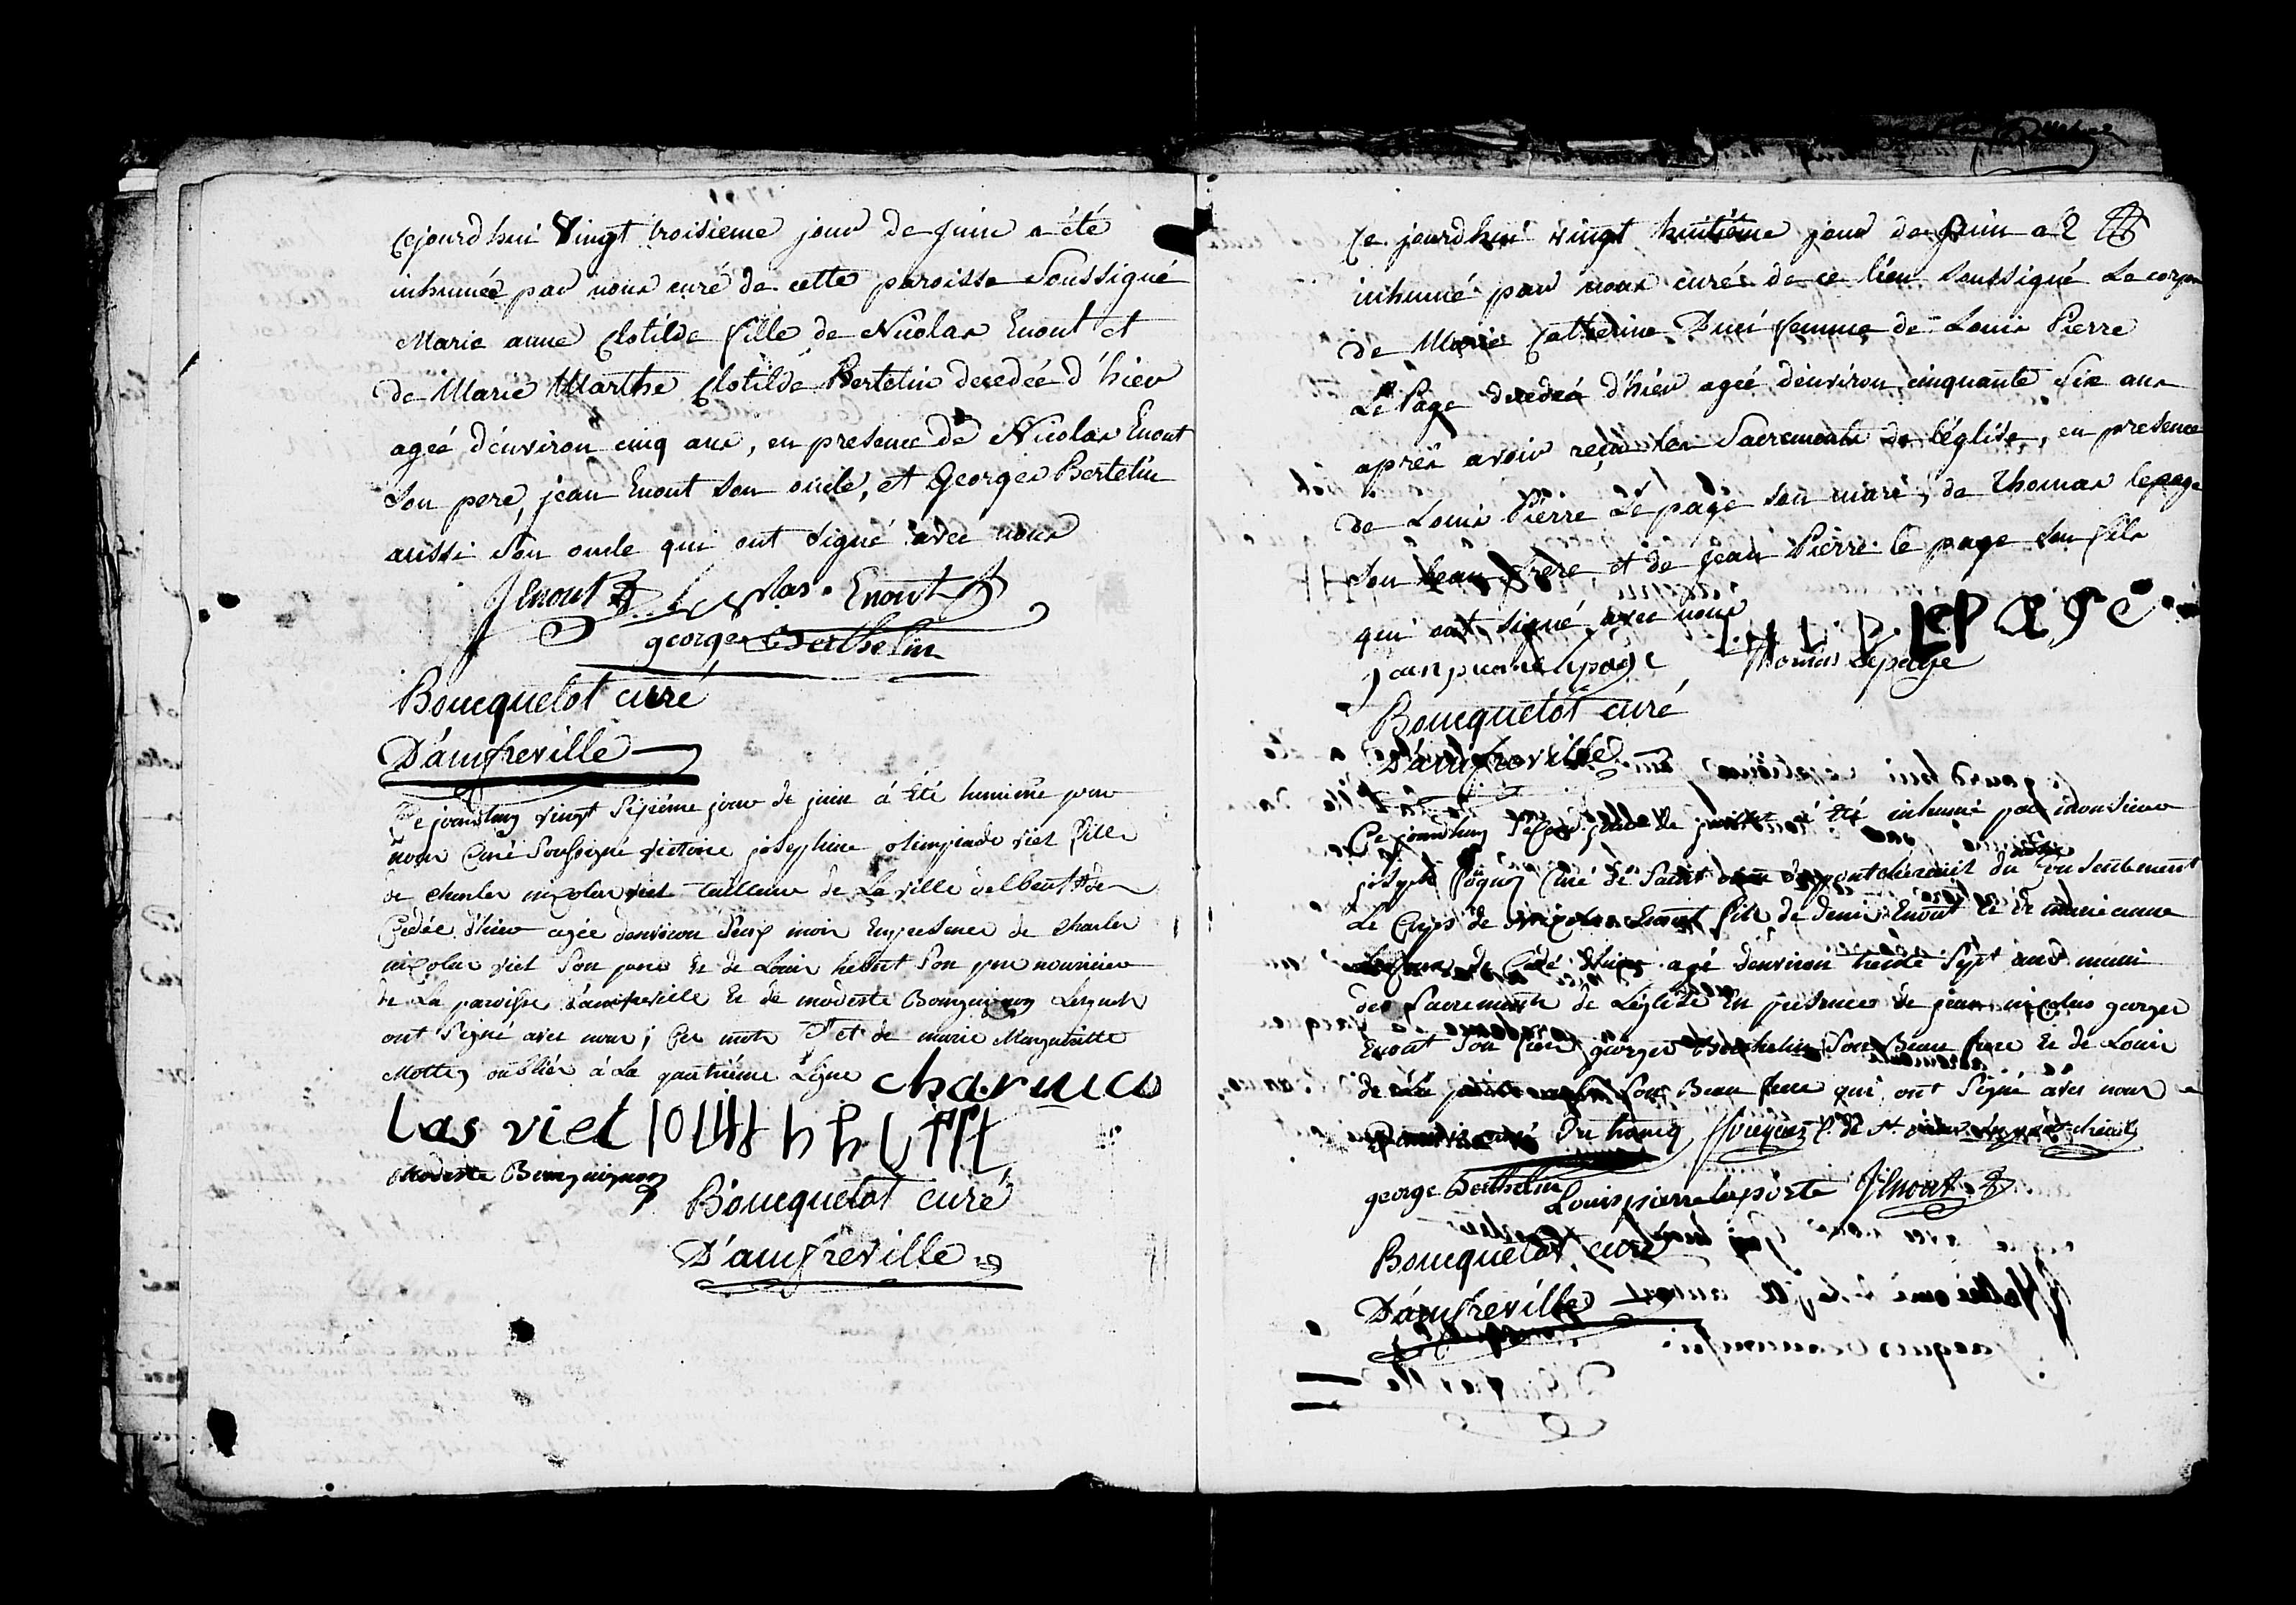 Cejourdhui Vingt troisieme jour de juin a été
inhumée par nous curé de cette paroisse Soussigné
Marie anne Clotilde fille de Nicolas Enout et
de Marie Marthe Clotilde Bertelin decedée d'hier
ageé d'environ cinq ans, en presence de Nicolas Enout
Son pere, jean Enout son oncle, et Georges Bertelin
aussi Son oncle qui ont signé avec nous
J Enout Nicolas Enout
georges Berthelin
Boucquelot curé
D'amfreville
Ce jourdhuy vingt Sixiéme jour de juin á été humée par
nous Curé Soussigné victoire josephine olimpiade viel fille
de charles nicolas viel tailleur de La ville delbeuf de
Cedée d'hier agée denviron Six mois En presence de charles
nicolas viel Son pere Et de Louis hebert Son pere nouricier
de La paroisse d'amfreville Et de modeste Bourguignon Lesquels
ont Signé avec nous; Ces mots et de marie Marguerite
Mottes oubliés à La quatriéme Ligne charnico
las viel
Modeste Bourguignon
Boucquelot curé
D'amfreville
Ce jourdhui vingt huitiéme jour de juin a é
inhumé par nous curé de ce lieu Soussigné Le corps
de Marie Catherine Duci femme de Louis Pierre
Le Page decedeé d'hier ageé d'environ cinquante Six ans
aprés avoir reçu les Sacrements de l'église, en presence
de Louis Pierre Le page son mari, de Thomas lepage
Son beau frere, et de jean Pierre le page son fils
qui ont signé avec nous LEPAGE
jean pierre lepage Thomas Lepage
Boucquelot curé
D'amfreville
Ce jourdhuy jour de juillet á été inhumé par monsieur
joseph curé de Saint du pontcherauit du Consentement
Le Corps de nicolas Enout fils de denis Enout Et de marie anne
de Cédé d'hier agé denviron trente Sept ans muni
des Sacrements de L'église En presence de jean nicolas georges
Enout Son frere georges Berthelin Son Beau frere Et de Louis
de La porte Son Beau frere qui ont Signé avec nous
curé Du
george Berthelin Louis pierre laporte J Enout
Boucquelot curé
D'amfreville